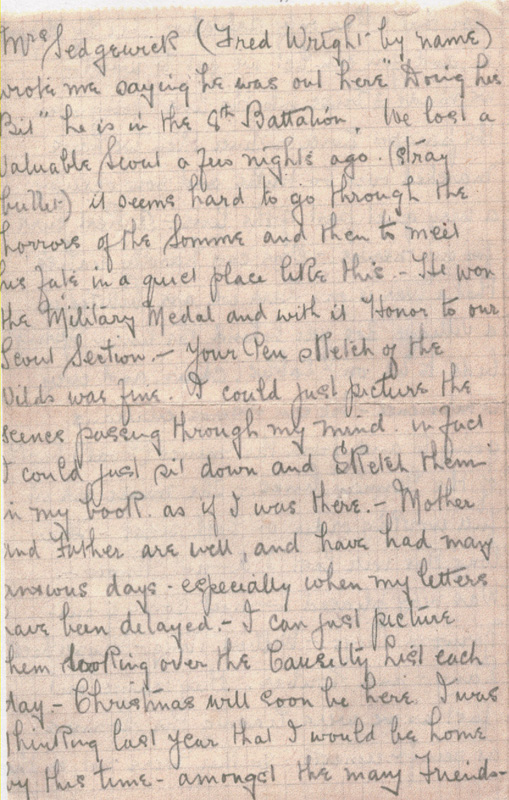 Mrs Sedgewick (Fred Wright by name)
wrote me saying he was out here "Doing his
Bit" he is in the 8th Battalion. We lost a
valuable Scout a few nights ago. (stray
bullet) it seems hard to go through the
horrors of the Somme and then to meet
his fate in a quiet place like this. - He won
the Military Medal and with it Honor to our
Scout Section. - Your Pen sketch of the
Wilds was fine. I could just picture the
scenes passing through my mind. in fact
I could just sit down and Sketch them
in my book. as if I was there. - Mother
and Father are well, and have had many
anxious days - especially when my letters
have been delayed. - I can just picture
them looking over the Causilty List each
day - Christmas will soon be here. I was
thinking last year that I would be home
by this time - amongst the many Friends -